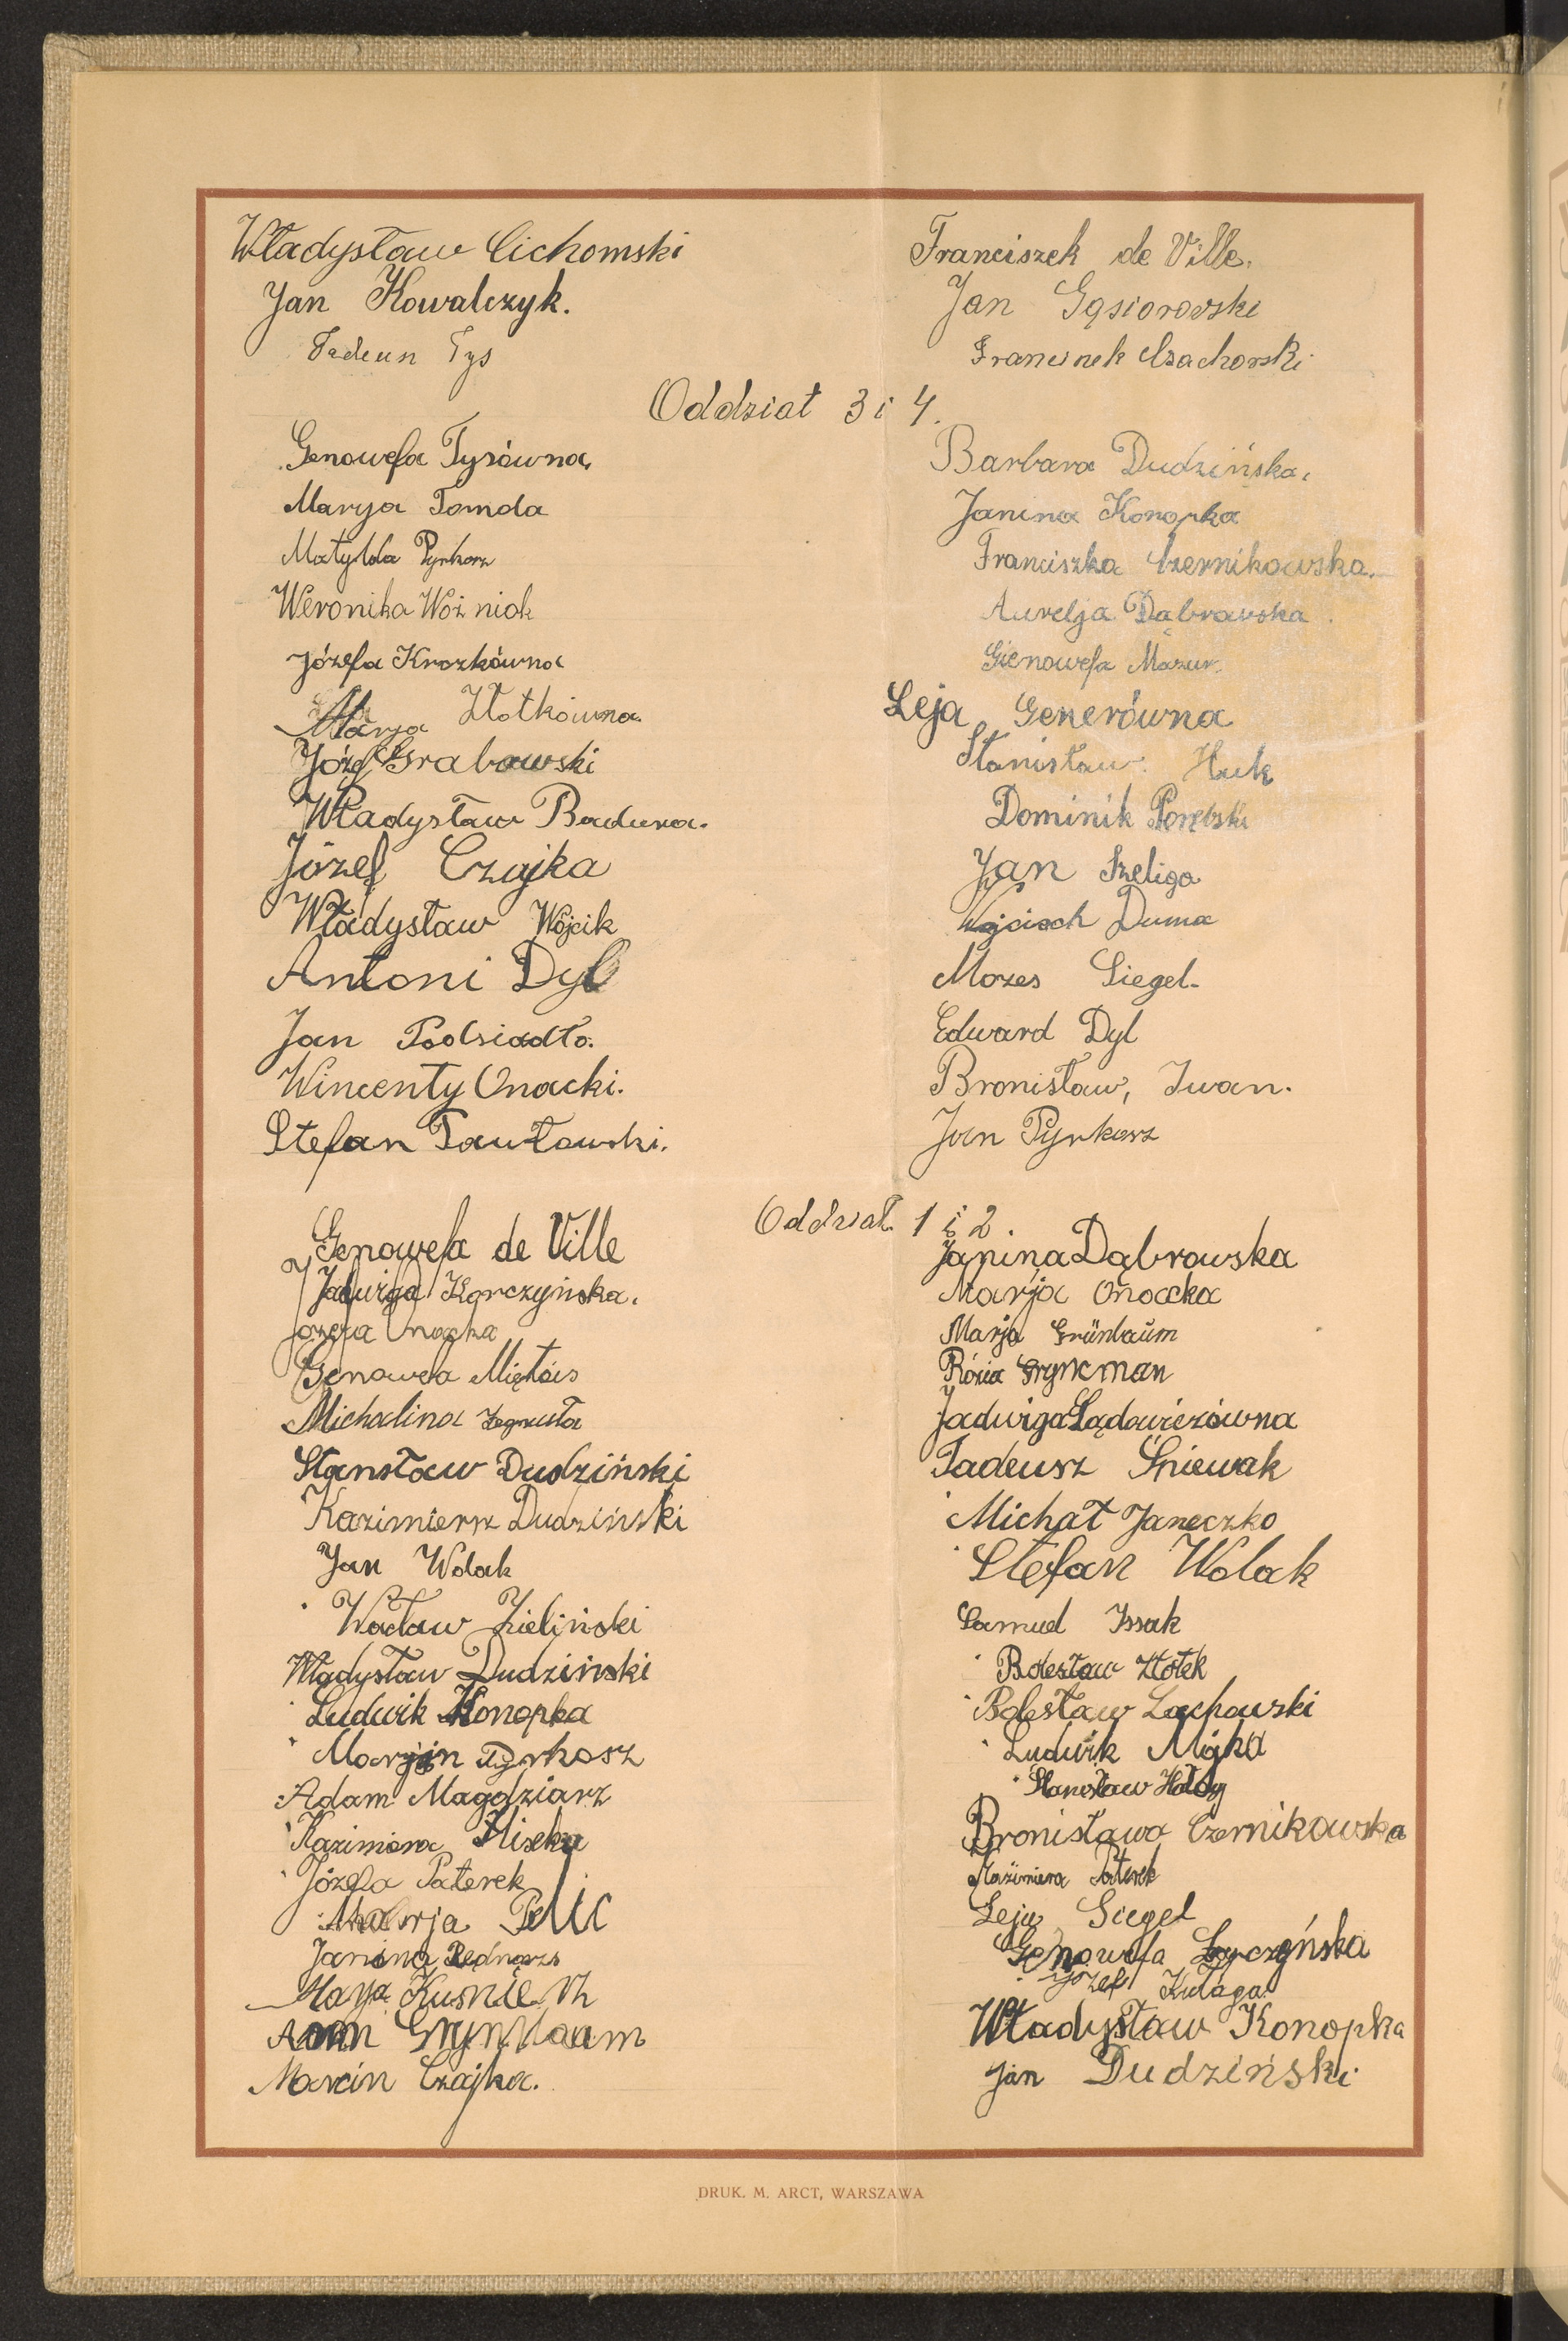 Władysław Cichomski
Jan Kowalczyk.
Tadeusz Tys
Franciszek de Ville.
Jan Gąsiorowski
Franciszek Czachorski
Oddział 3 i 4.
Genowefa Tysówna,
Marya Tomda
Matylda Pyrkosz
Weronika Woźniak
Józefa Krozkówna
Marja Złotkówna.
Józef Grabowski
Władysław Badura.
Józef Czajka
Władysław Wójcik
Antoni Dyl
Jan Podsiadło.
Wincenty Onacki.
Stefan Pawłowski.
Barbara Dudzińska.
Janina Konopka
Franciszka Czernikowska.
Aurelja Dąbrowska.
Gienowefa Mazur.
Leja Generówna
Stanisław Huk
Dominik Porębski
Jan Szeliga
Wojciech Duma
Mozes Siegel.
Edward Dyl
Bronisław, Iwan.
Jan Pyrkosz
Oddział 1 i 2.
Genowefa de Ville
Jadwiga Korczyńska.
Józefa Onacka
Genowefa Miętus
Michalina
Stanisław Dudziński
Kazimierz Dudziński
Jan Wolak
Wacław Zieliński
Władysław Dudziński
Ludwik Konopka
Marjan Pyrkosz
Adam Magdziarz
Kazimiera
Józefa Paterek
Marja
Janina Bednarz
Marja Kuśnierz
Marcin Czajka.
Janina Dąbrowska
Marja Onacka
Marja Grünbaum
Rózia Grynrman
Jadwiga Lądowiczówna
Tadeusz Śniewak
Michał Janeczko
Stefan Wolak
Samuel Issak
Bolesław Złotek
Bolesław Lachowski
Ludwik Majka
Stanisław Hołdy
Bronisława Czernikowska
Kazimiera Paterek
Leja Siegel
Genowefa
Józef Kułaga.
Władysław Konopka
Jan Dudziński
DRUK. M. ARCT, WARSZAWA